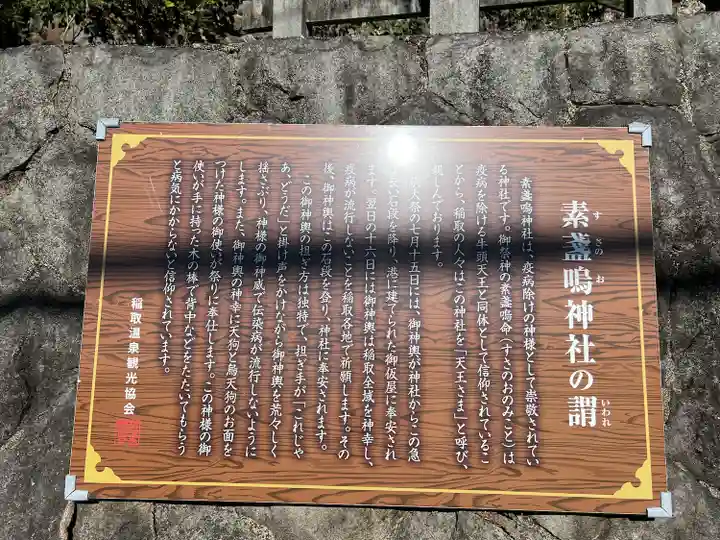 素盞嗚神社の謂
すさのお
いわれ
素盞嗚神社は、疫病除けの神様として崇敬されてい
る神社です。御祭神の素盞嗚命(すさのおのみこと)は
疫病を除ける牛頭天王と同体として信仰されているこ
とから、稲取の人々はこの神社を「天王さま」と呼び、
親しんでおります。
人祭の七月十五日には、御神輿が神社からこの急
な長い石段を降り、港に建てられた御仮屋に奉安され
ます。翌日の十六日には御神輿は稲取全域を神幸し、
疫病が流行しないことを稲取各地で祈願します。その
後、御神輿はこの石段を登り、神社に奉安されます。
この御神輿の担ぎ方は独特で、担ぎ手が「これじゃ
あ、どうだ」と掛け声をかけながら御神輿を荒々しく
揺さぶり、神様の御神威で伝染病が流行しないように
します。また、御神輿の神幸に天狗と烏天狗のお面を
つけた神様の御使いが祭りに奉仕します。この神様の御
使いが手に持った木の棒で背中などをたたいてもらう
と病気にかからないと信仰されています。
稲取温泉観光協会